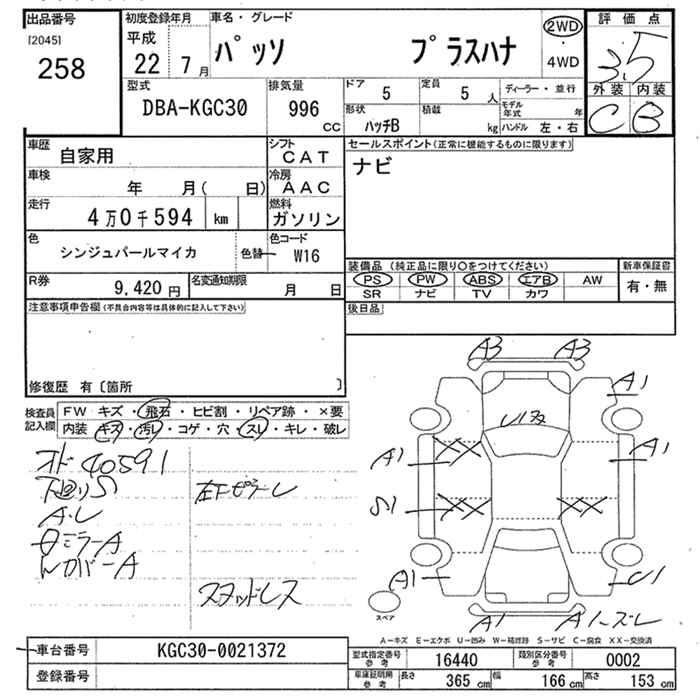 出品番号
[2045]
258
初度登録年月
平成
22 7月
車名・グレード
パッソ プラスハナ
2WD
・
4WD
評価点
3.5
外装 内装
C B
型式
DBA-KGC30
排気量
996
CC
ドア
5
定員
5 人
ディーラー・並行
形状
ハッチB
積載
kg
モデル年式 年
ハンドル 左・右
車歴
自家用
シフト
CAT
車検
年 月( 日)
冷房
AAC
走行
4万0千594 km
燃料
ガソリン
色
シンジュパールマイカ
色替
色コード
W16
R券
9,420円
名変通知期限
月 日
セールスポイント(正常に機能するものに限ります)
ナビ
装備品 (純正品に限り○をつけてください)
PS PW ABS エアB AW
SR ナビ TV カワ
新車保証書
有・無
後日品
注意事項申告欄(不具合内容等は具体的に記入して下さい)
修復歴 有〔箇所 〕
検査員
記入欄
FW キズ・飛石・ヒビ割・リペア跡・×要
内装 キズ・汚レ・コゲ・穴・スレ・キレ・破レ
オド 40591
下廻りS
A・レ
左下ピラーレ
ミラーA
カバーA
スタッドレス
A3 A3
A1
A1
A1
S1
XX XX
XX
A1
U1
A1 A1ースレ
スペア
A-キズ E-エクボ U-凹み W-補修跡 S-サビ C-腐食 XX-交換済
車台番号
KGC30-0021372
登録番号
型式指定番号
参考
16440
類別区分番号
参考
0002
車庫証明用
参考
長さ
365 cm
幅
166 cm
高さ
153 cm